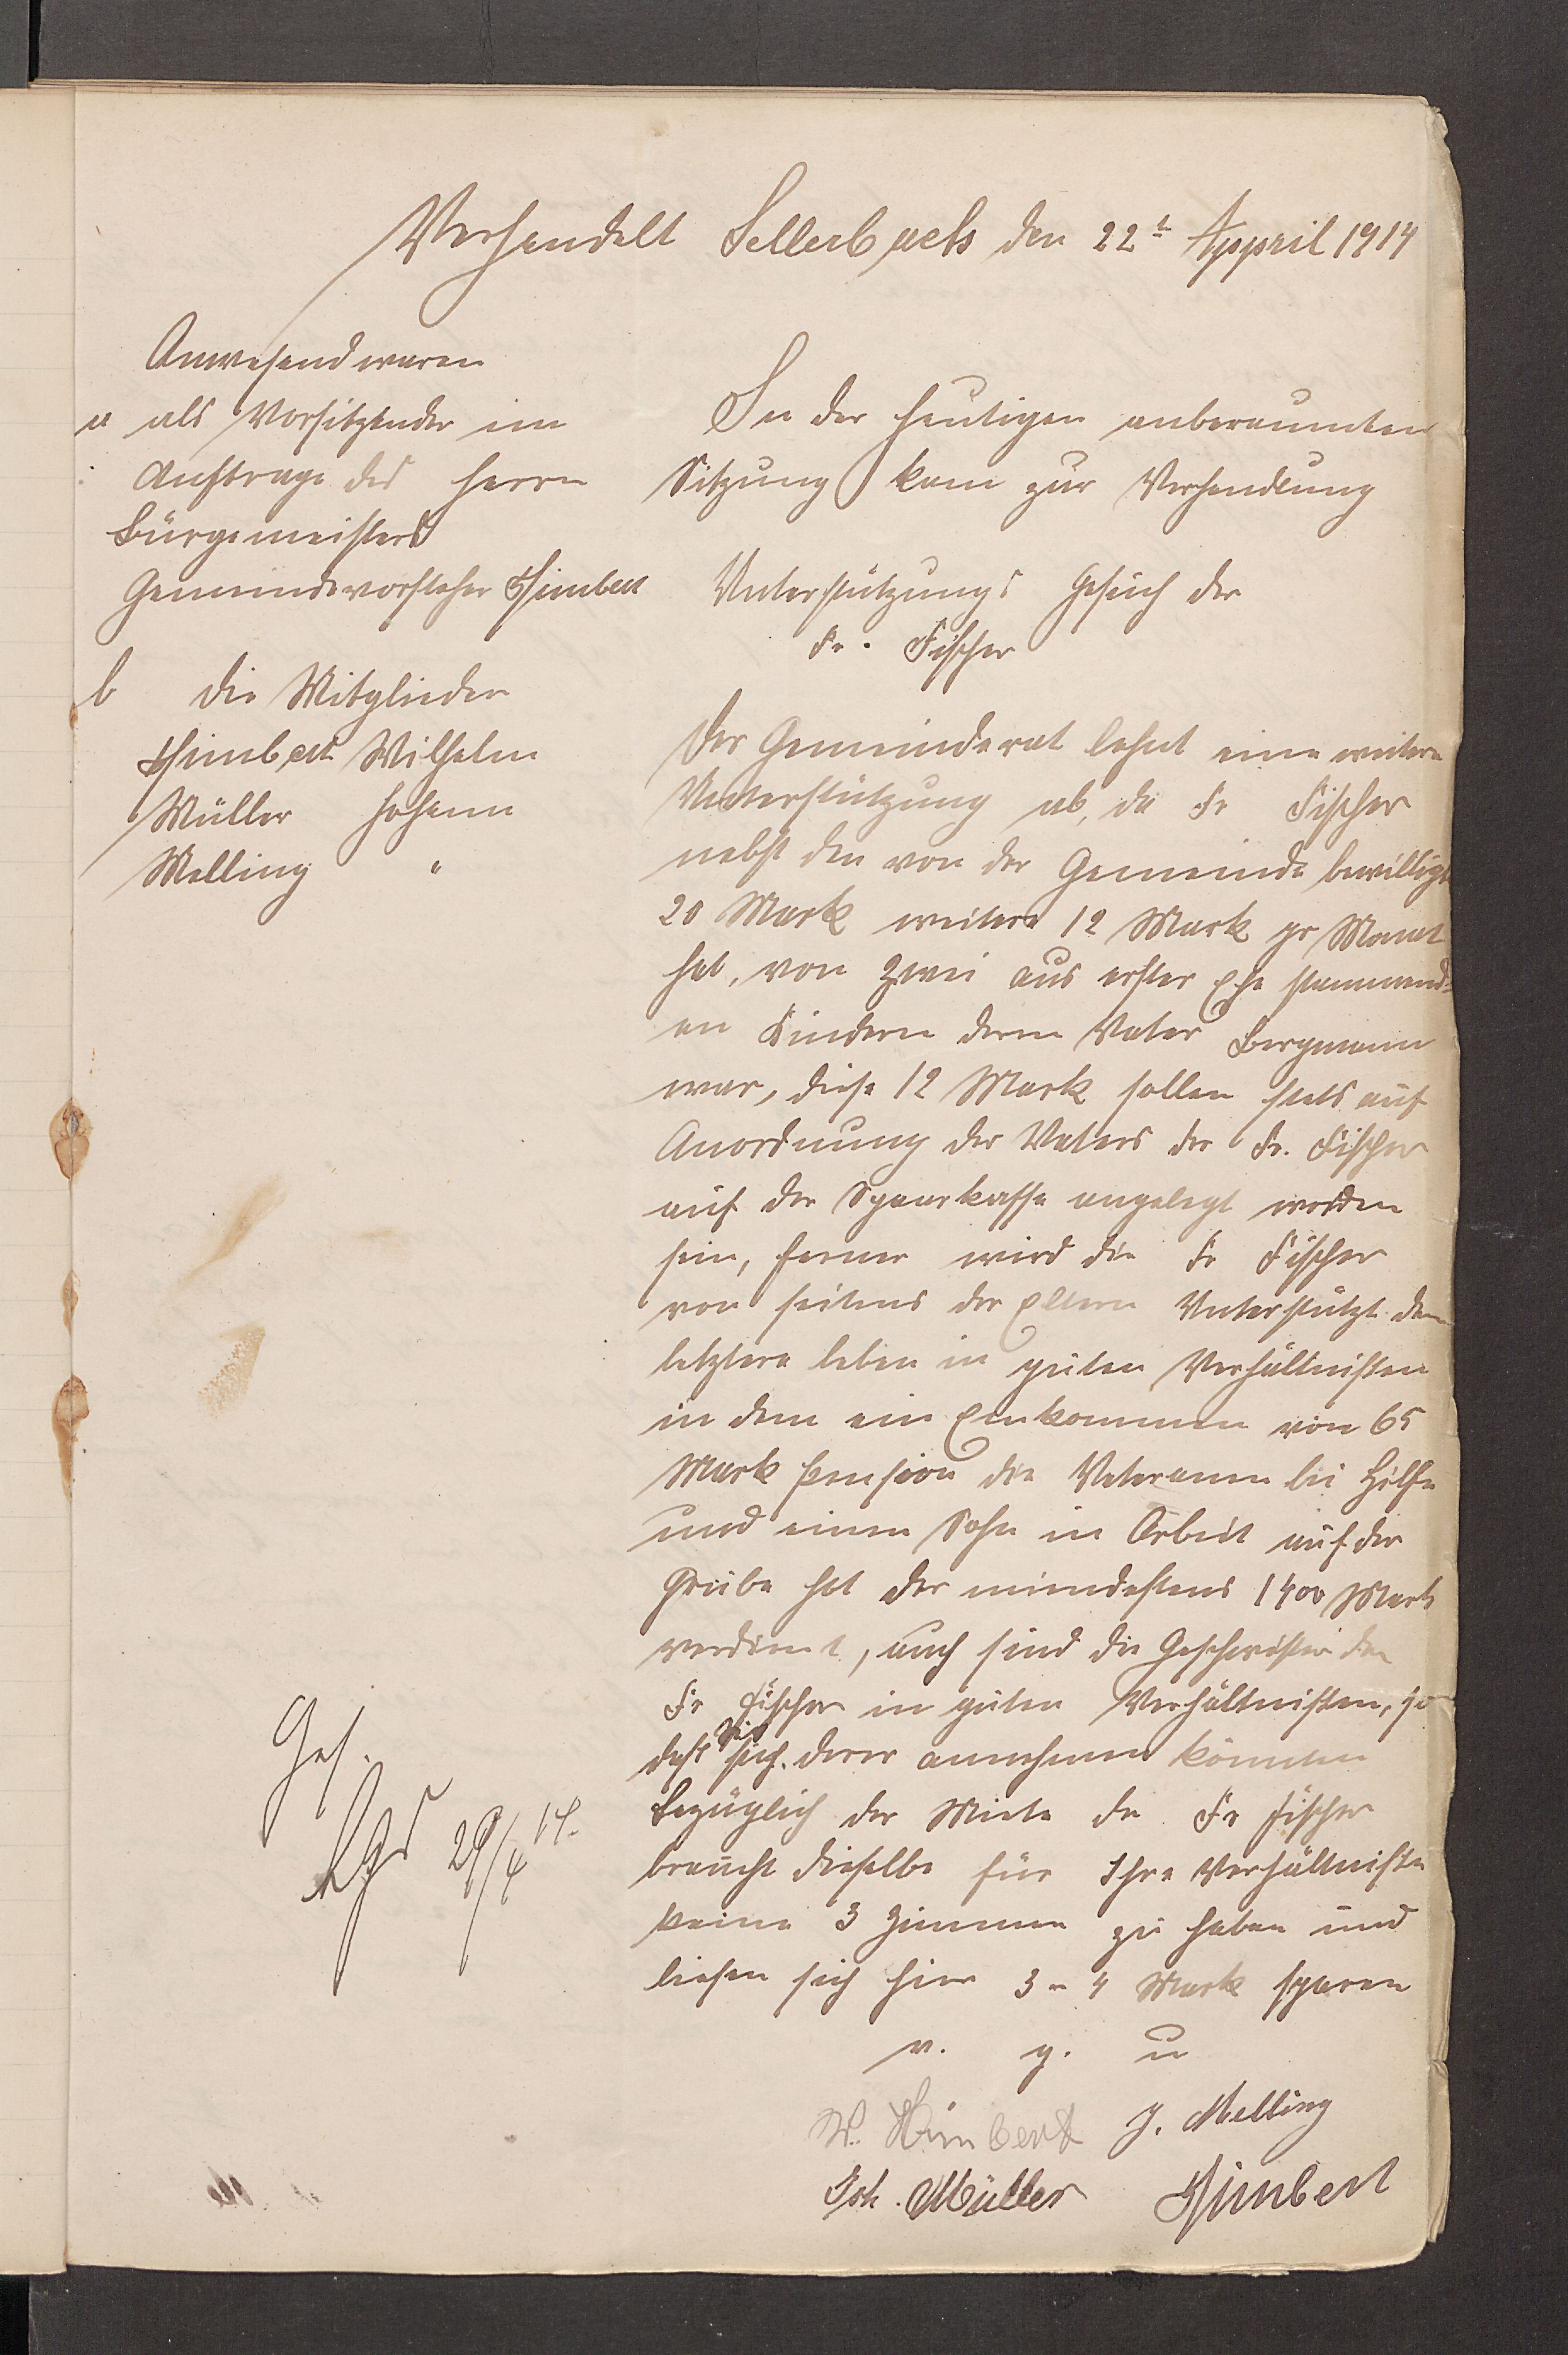 Verhandelt Sellerbach den 22t Appril 1914
Anwesend waren
a als Vorsitzender im
Auftrage des Herrn
Bürgemeisters
Gemeindevorsteher Himbert
b die Mitglieder
Himbert Wilhelm
Müller Johann
Melling "
In der heutigen anberaumten
Sitzung kam zur Verhandlung
Unterstützungs Gesuch der
Fr. Fischer
Der Gemeinderat lehnt eine weitere
Unterstützung ab, da Fr Fischer
nebst den von der Gemeinde bewilligt
20 Mark weitere 12 Mark pr Monat
hat, von zwei aus erster Ehe stammend-
en Kindern deren Vater Bergmann
war, diese 12 Mark sollen stets auf
Anordnung des Vaters der Fr. Fischer
auf der Spaarkasse angelegt worden
sein, ferner wird die Fr Fischer
von seitens der Eltern Unterstützt den
letztere leben in guten Verhältnissen
in dem ein Einkommen von 65
Mark Pension die Veteranen bei Hilfe
und einen Sohn in Arbeit auf der
Grube hat der mindestens 1400 Mark
verdient, auch sind die Geschwister der
Fr Fischer in guten Verhältnissen, so
daß Sie sich derer annehmen könnten
Bezüglich der Miete der Fr Fischer
braucht dieselbe für Ihre Verhältnisse
keine 3 Zimmer zu haben und
liesen sich hier 3 - 4 Mark sparen
v. g. u
W. Himbert J. Melling
Joh. Müller Himbert
Ges.
29/4 14.